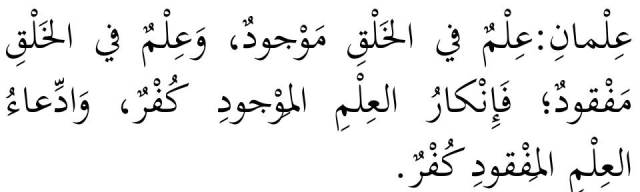 عِلْمانِ:عِلْمٌ في الخَلْقِ مَوْجودٌ، وَعِلْمٌ في الخَلْقِ
مَفْقودٌ؛ فَإِنْكارُ العِلْمِ المَوْجودِ كُفْرٌ، وَادِّعاءُ
العِلْمِ المَفْقودِ كُفْرٌ.